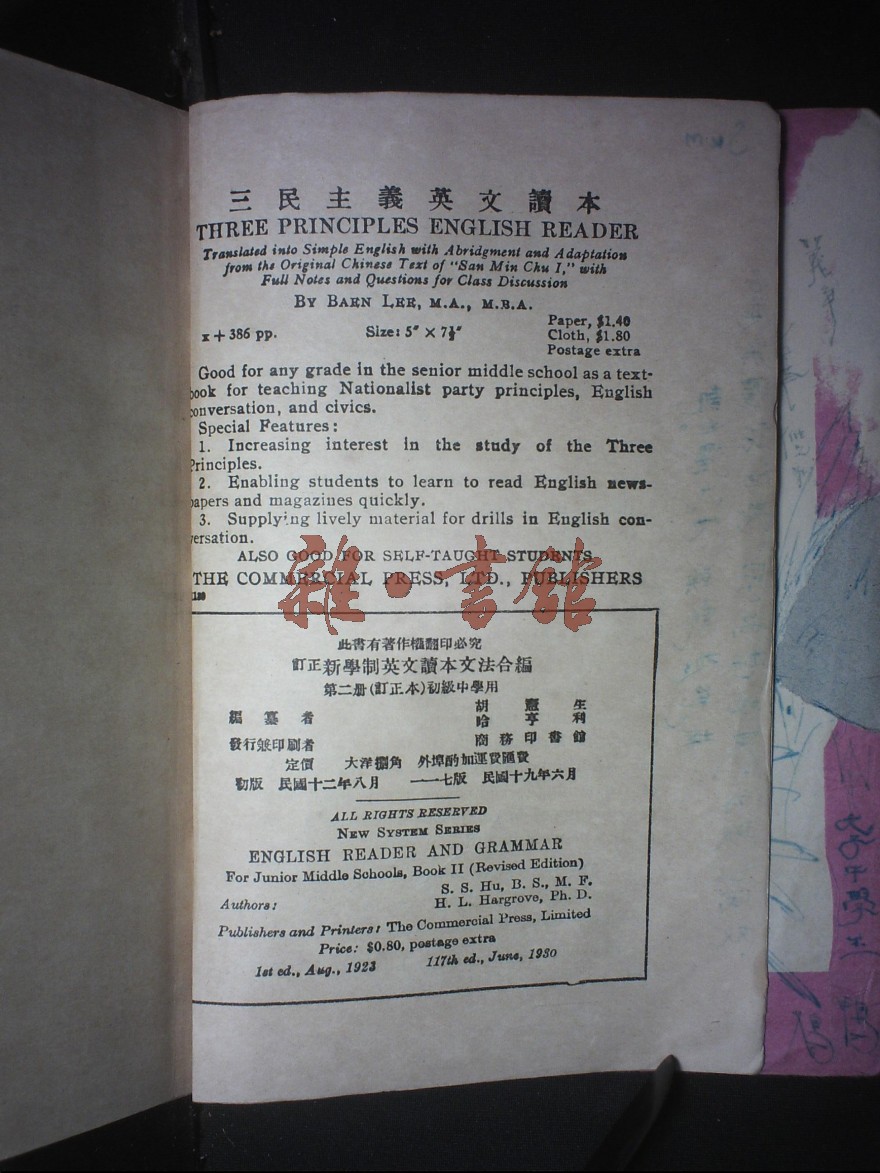 三民主義英文讀本
THREE PRINCIPLES ENGLISH READER
Translated into Simple English with Abridgment and Adaptation
from the Original Chinese Text of "San Min Chu I," with
Full Notes and Questions for Class Discussion
By Baen Lee, M.A., M.B.A.
x + 386 pp. Size: 5" × 7½" Paper, $1.40
Cloth, $1.80
Postage extra
Good for any grade in the senior middle school as a text-
book for teaching Nationalist party principles, English
conversation, and civics.
Special Features:
1. Increasing interest in the study of the Three
Principles.
2. Enabling students to learn to read English news-
papers and magazines quickly.
3. Supplying lively material for drills in English con-
versation.
ALSO GOOD FOR SELF-TAUGHT STUDENTS
THE COMMERCIAL PRESS, LTD., PUBLISHERS
雜·書館
此書有著作權翻印必究
訂正新學制英文讀本文法合編
第二册(訂正本)初級中學用
編纂者 胡憲生
哈亨利
發行兼印刷者 商務印書館
定價 大洋捌角 外埠酌加運費匯費
初版 民國十二年八月 一一七版 民國十九年六月
ALL RIGHTS RESERVED
New System Series
ENGLISH READER AND GRAMMAR
For Junior Middle Schools, Book II (Revised Edition)
Authors: S. S. Hu, B. S., M. F.
H. L. Hargrove, Ph. D.
Publishers and Printers: The Commercial Press, Limited
Price: $0.80, postage extra
1st ed., Aug., 1923 117th ed., June, 1930